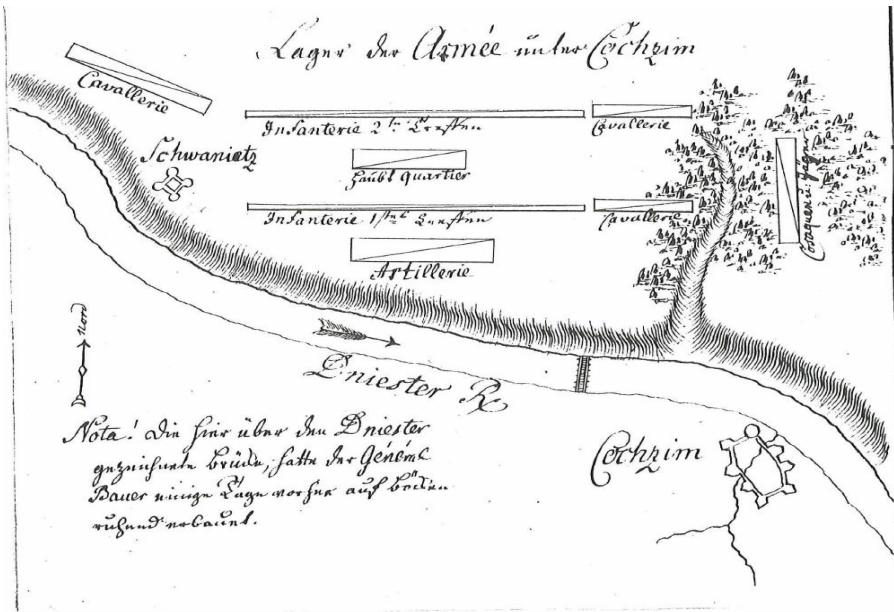 Lager der Armée unter Cochzim
Cavallerie
Infanterie 2ten Treffen
Cavallerie
Schwanietz
Haubt Quartier
Infanterie 1sten Treffen
Cavallerie
Artillerie
Nord
Dniester R.
Nota! Die hier über den Dniester
gezeichnete brücke, hatte der Général
Bauer einige Tage vorher auf
ruhend erbauet.
Cochzim